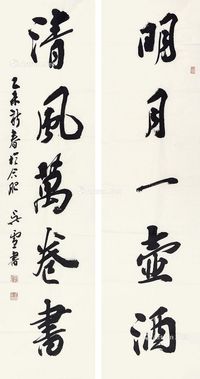 明月一壺酒
清風萬卷書
乙未新春於合肥
吳雪書